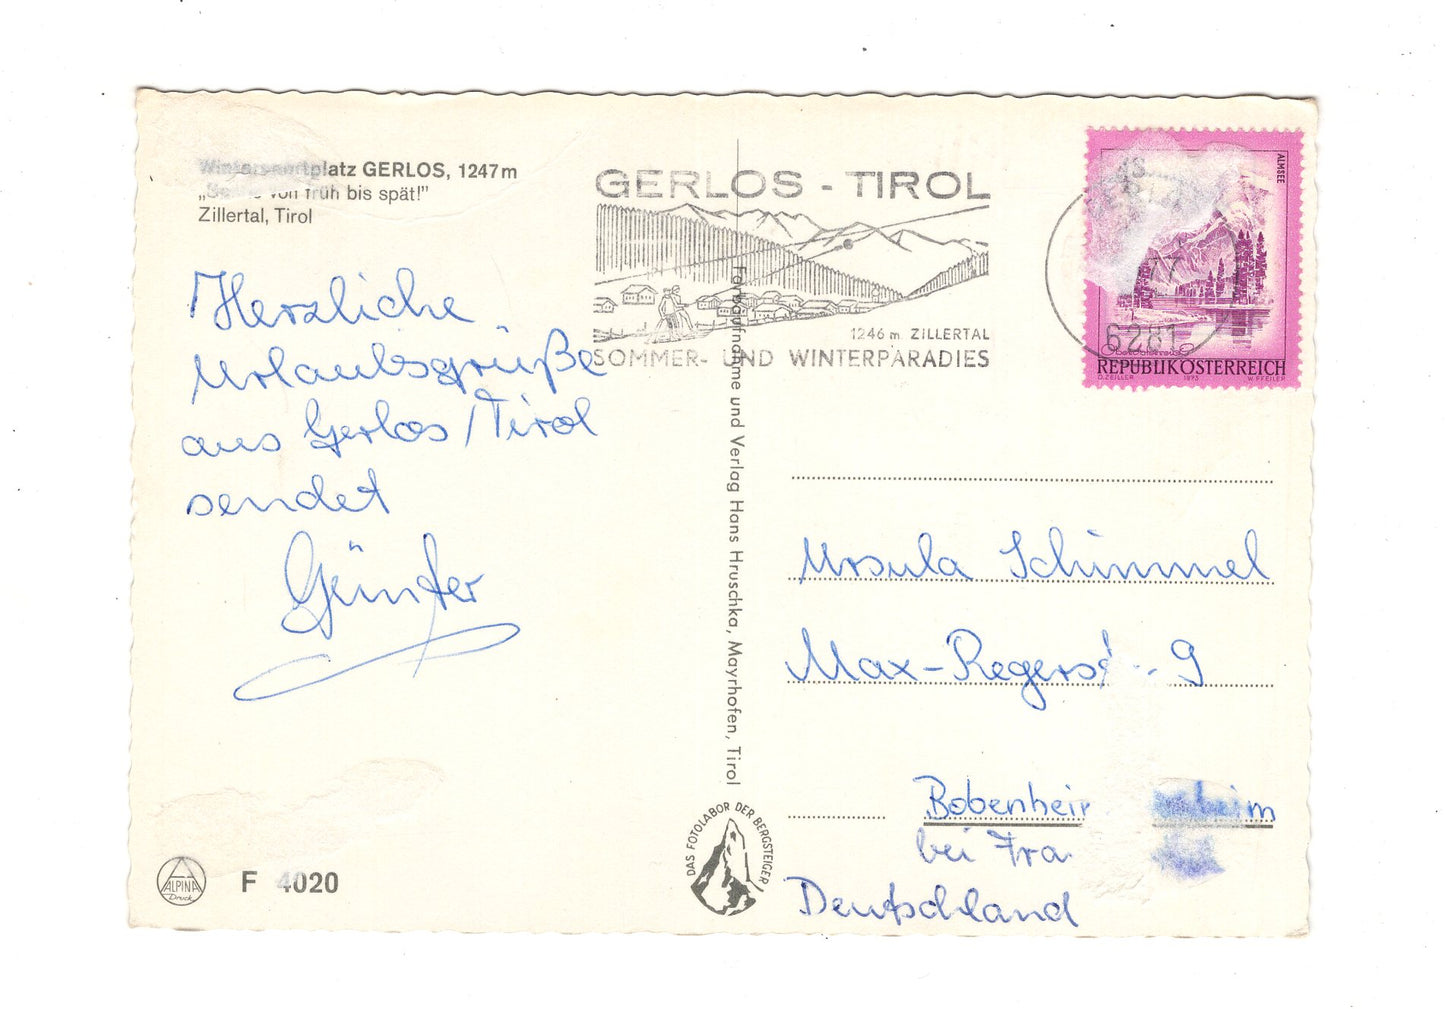 Wintersportplatz GERLOS, 1247 m
von früh bis spät!"
Zillertal, Tirol
GERLOS - TIROL
1246 m ZILLERTAL
SOMMER- UND WINTERPARADIES
77
6281
ALMSEE
REPUBLIK ÖSTERREICH
O. ZEILLER 1973 W. PFEILER
Herzliche
Urlaubsgrüße
aus Gerlos/Tirol
sendet
Günter
Farbaufnahme und Verlag Hans Hruschka, Mayrhofen, Tirol
Ursula Schimmel
Max-Regerstr. 9
Bobenheim
bei Fra
Deutschland
DAS FOTOLABOR DER BERGSTEIGER
ALPINA
Druck
F 4020